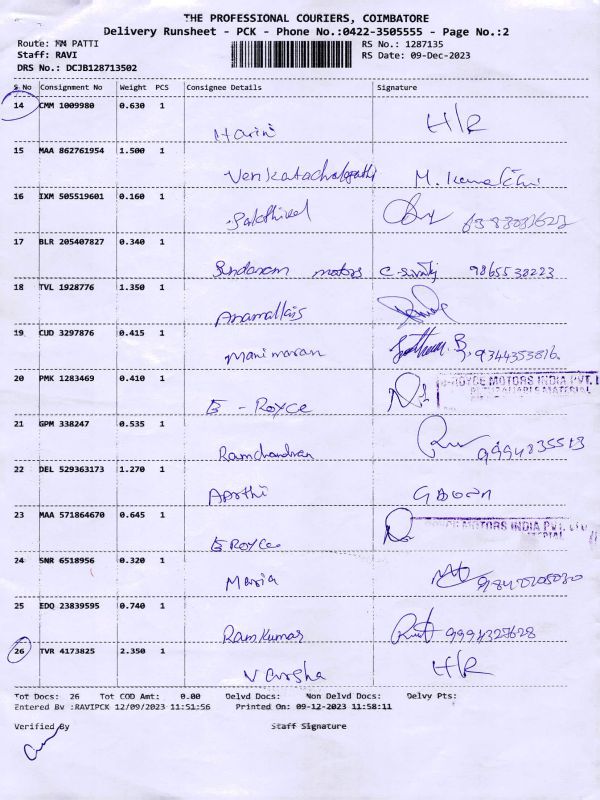 THE PROFESSIONAL COURIERS, COIMBATORE
Delivery Runsheet - PCK - Phone No.:0422-3505555 - Page No.:2
Route: MM PATTI RS No.: 1287135
Staff: RAVI RS Date: 09-Dec-2023
DRS No.: DCJB128713502
S No Consignment No Weight PCS Consignee Details Signature
14 CMM 1009980 0.630 1
Harini H/R
15 MAA 862761954 1.500 1
Venkatachalapathi M.
16 IXM 505519601 0.160 1
Sakthivel
17 BLR 205407827 0.340 1
Sundaram motors C. 9865538223
18 TVL 1928776 1.350 1
Anamallais
19 CUD 3297876 0.415 1
Manimaran B. 9344353816.
20 PMK 1283469 0.410 1
E - Royce ROYCE MOTORS INDIA PVT. L
21 GPM 338247 0.535 1
Ramchandran 9994835513
22 DEL 529363173 1.270 1
Aarthi
23 MAA 571864670 0.645 1
E Royce MOTORS INDIA PVT. LTD
24 SNR 6518956 0.320 1
Maria
25 EDQ 23839595 0.740 1
Ramkumar
26 TVR 4173825 2.350 1
Varsha H/R
Tot Docs: 26 Tot COD Amt: 0.00 Delvd Docs: Non Delvd Docs: Delvy Pts:
Entered By :RAVIPCK 12/09/2023 11:51:56 Printed On: 09-12-2023 11:58:11
Verified By Staff Signature